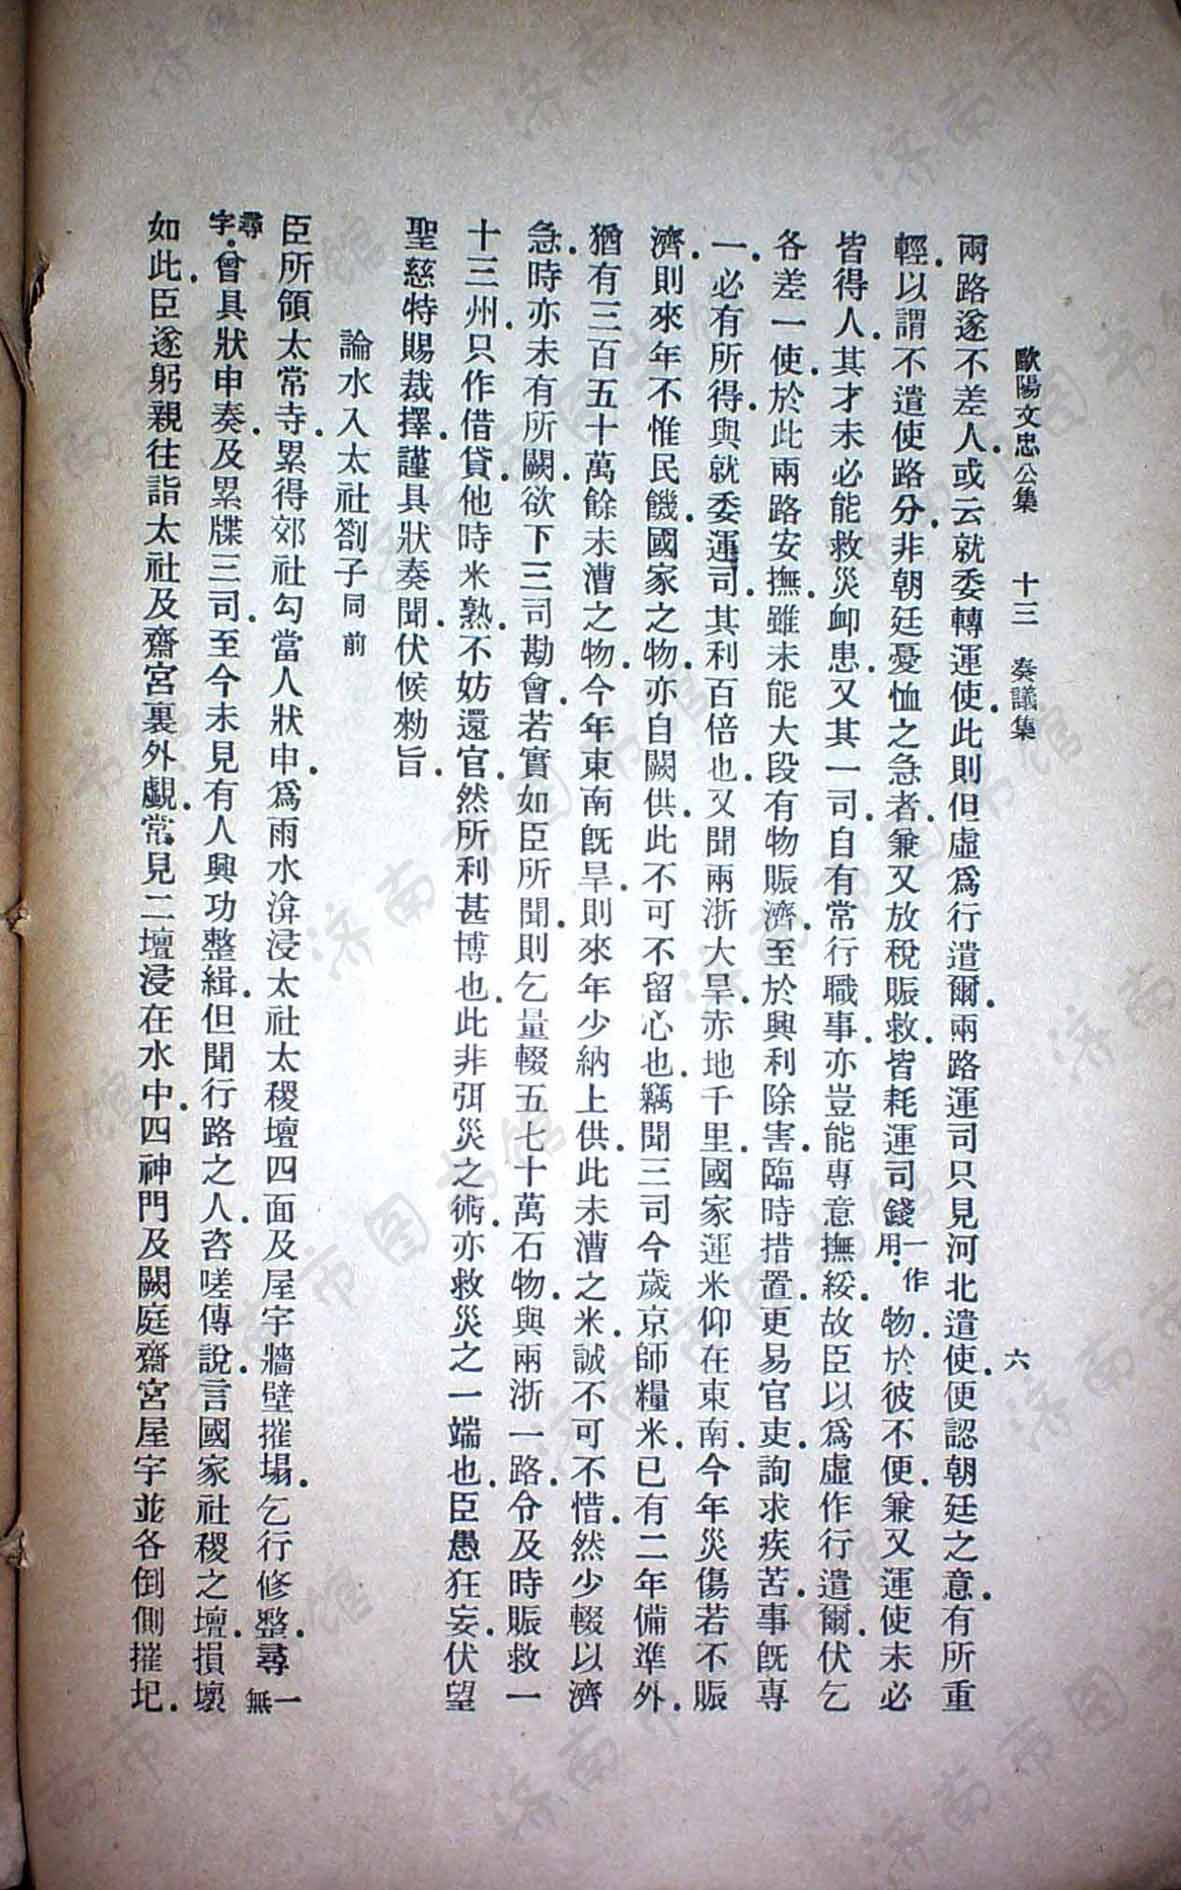 歐陽文忠公集　十三　奏議集　六
兩路遂不差人.或云就委轉運使.此則但虛爲行遣爾.兩路運司只見河北遣使.便認朝廷之意.有所重
輕.以謂不遣使路分.非朝廷憂恤之急者.兼又放稅賑救.皆耗運司錢一作用.物.於彼不便.兼又運使未必
皆得人.其才未必能救災卹患.又其一司.自有常行職事.亦豈能專意撫綏.故臣以爲虛作行遣爾.伏乞
各差一使.於此兩路安撫.雖未能大段有物賑濟.至於興利除害.臨時措置.更易官吏.詢求疾苦.事旣專
一.必有所得.與就委運司.其利百倍也.又聞兩浙大旱.赤地千里.國家運米仰在東南.今年災傷若不賑
濟.則來年不惟民饑.國家之物.亦自闕供.此不可不留心也.竊聞三司今歲京師糧米.已有二年備準外.
猶有三百五十萬餘未漕之物.今年東南旣旱.則來年少納上供.此未漕之米.誠不可不惜.然少輟以濟
急.時亦未有所闕.欲下三司勘會.若實如臣所聞.則乞量輟五七十萬石物.與兩浙一路.令及時賑救一
十三州.只作借貸.他時米熟.不妨還官.然所利甚博也.此非弭災之術.亦救災之一端也.臣愚狂妄.伏望
聖慈特賜裁擇.謹具狀奏聞.伏候勑旨.
論水入太社劄子同前
臣所領太常寺.累得郊社勾當人狀申.爲雨水渰浸太社太稷壇四面及屋宇牆壁摧塌.乞行修整.尋一無
尋字.曾具狀申奏.及累牒三司.至今未見有人興功整緝.但聞行路之人.咨嗟傳說.言國家社稷之壇.損壞
如此.臣遂躬親往詣太社及齋宮裏外覷.常見二壇浸在水中.四神門及闕庭齋宮屋宇並各倒側摧圮.